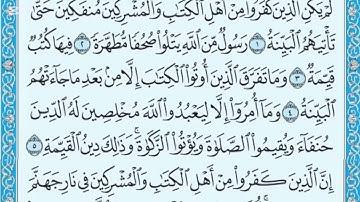 لَمْ يَكُنِ الَّذِينَ كَفَرُوا مِنْ أَهْلِ الْكِتَابِ وَالْمُشْرِكِينَ مُنفَكِّينَ حَتَّىٰ
تَأْتِيَهُمُ الْبَيِّنَةُ ١ رَسُولٌ مِّنَ اللَّهِ يَتْلُو صُحُفًا مُّطَهَّرَةً ٢ فِيهَا كُتُبٌ
قَيِّمَةٌ ٣ وَمَا تَفَرَّقَ الَّذِينَ أُوتُوا الْكِتَابَ إِلَّا مِنْ بَعْدِ مَا جَاءَتْهُمُ
الْبَيِّنَةُ ٤ وَمَا أُمِرُوا إِلَّا لِيَعْبُدُوا اللَّهَ مُخْلِصِينَ لَهُ الدِّينَ
حُنَفَاءَ وَيُقِيمُوا الصَّلَاةَ وَيُؤْتُوا الزَّكَاةَ وَذَٰلِكَ دِينُ الْقَيِّمَةِ ٥
إِنَّ الَّذِينَ كَفَرُوا مِنْ أَهْلِ الْكِتَابِ وَالْمُشْرِكِينَ فِي نَارِ جَهَنَّمَ